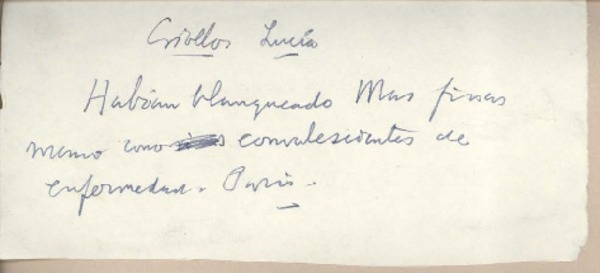 Criollos Lucía
Habían blanqueado Mas finas
manos como convalescientes de
enfermedad. París.